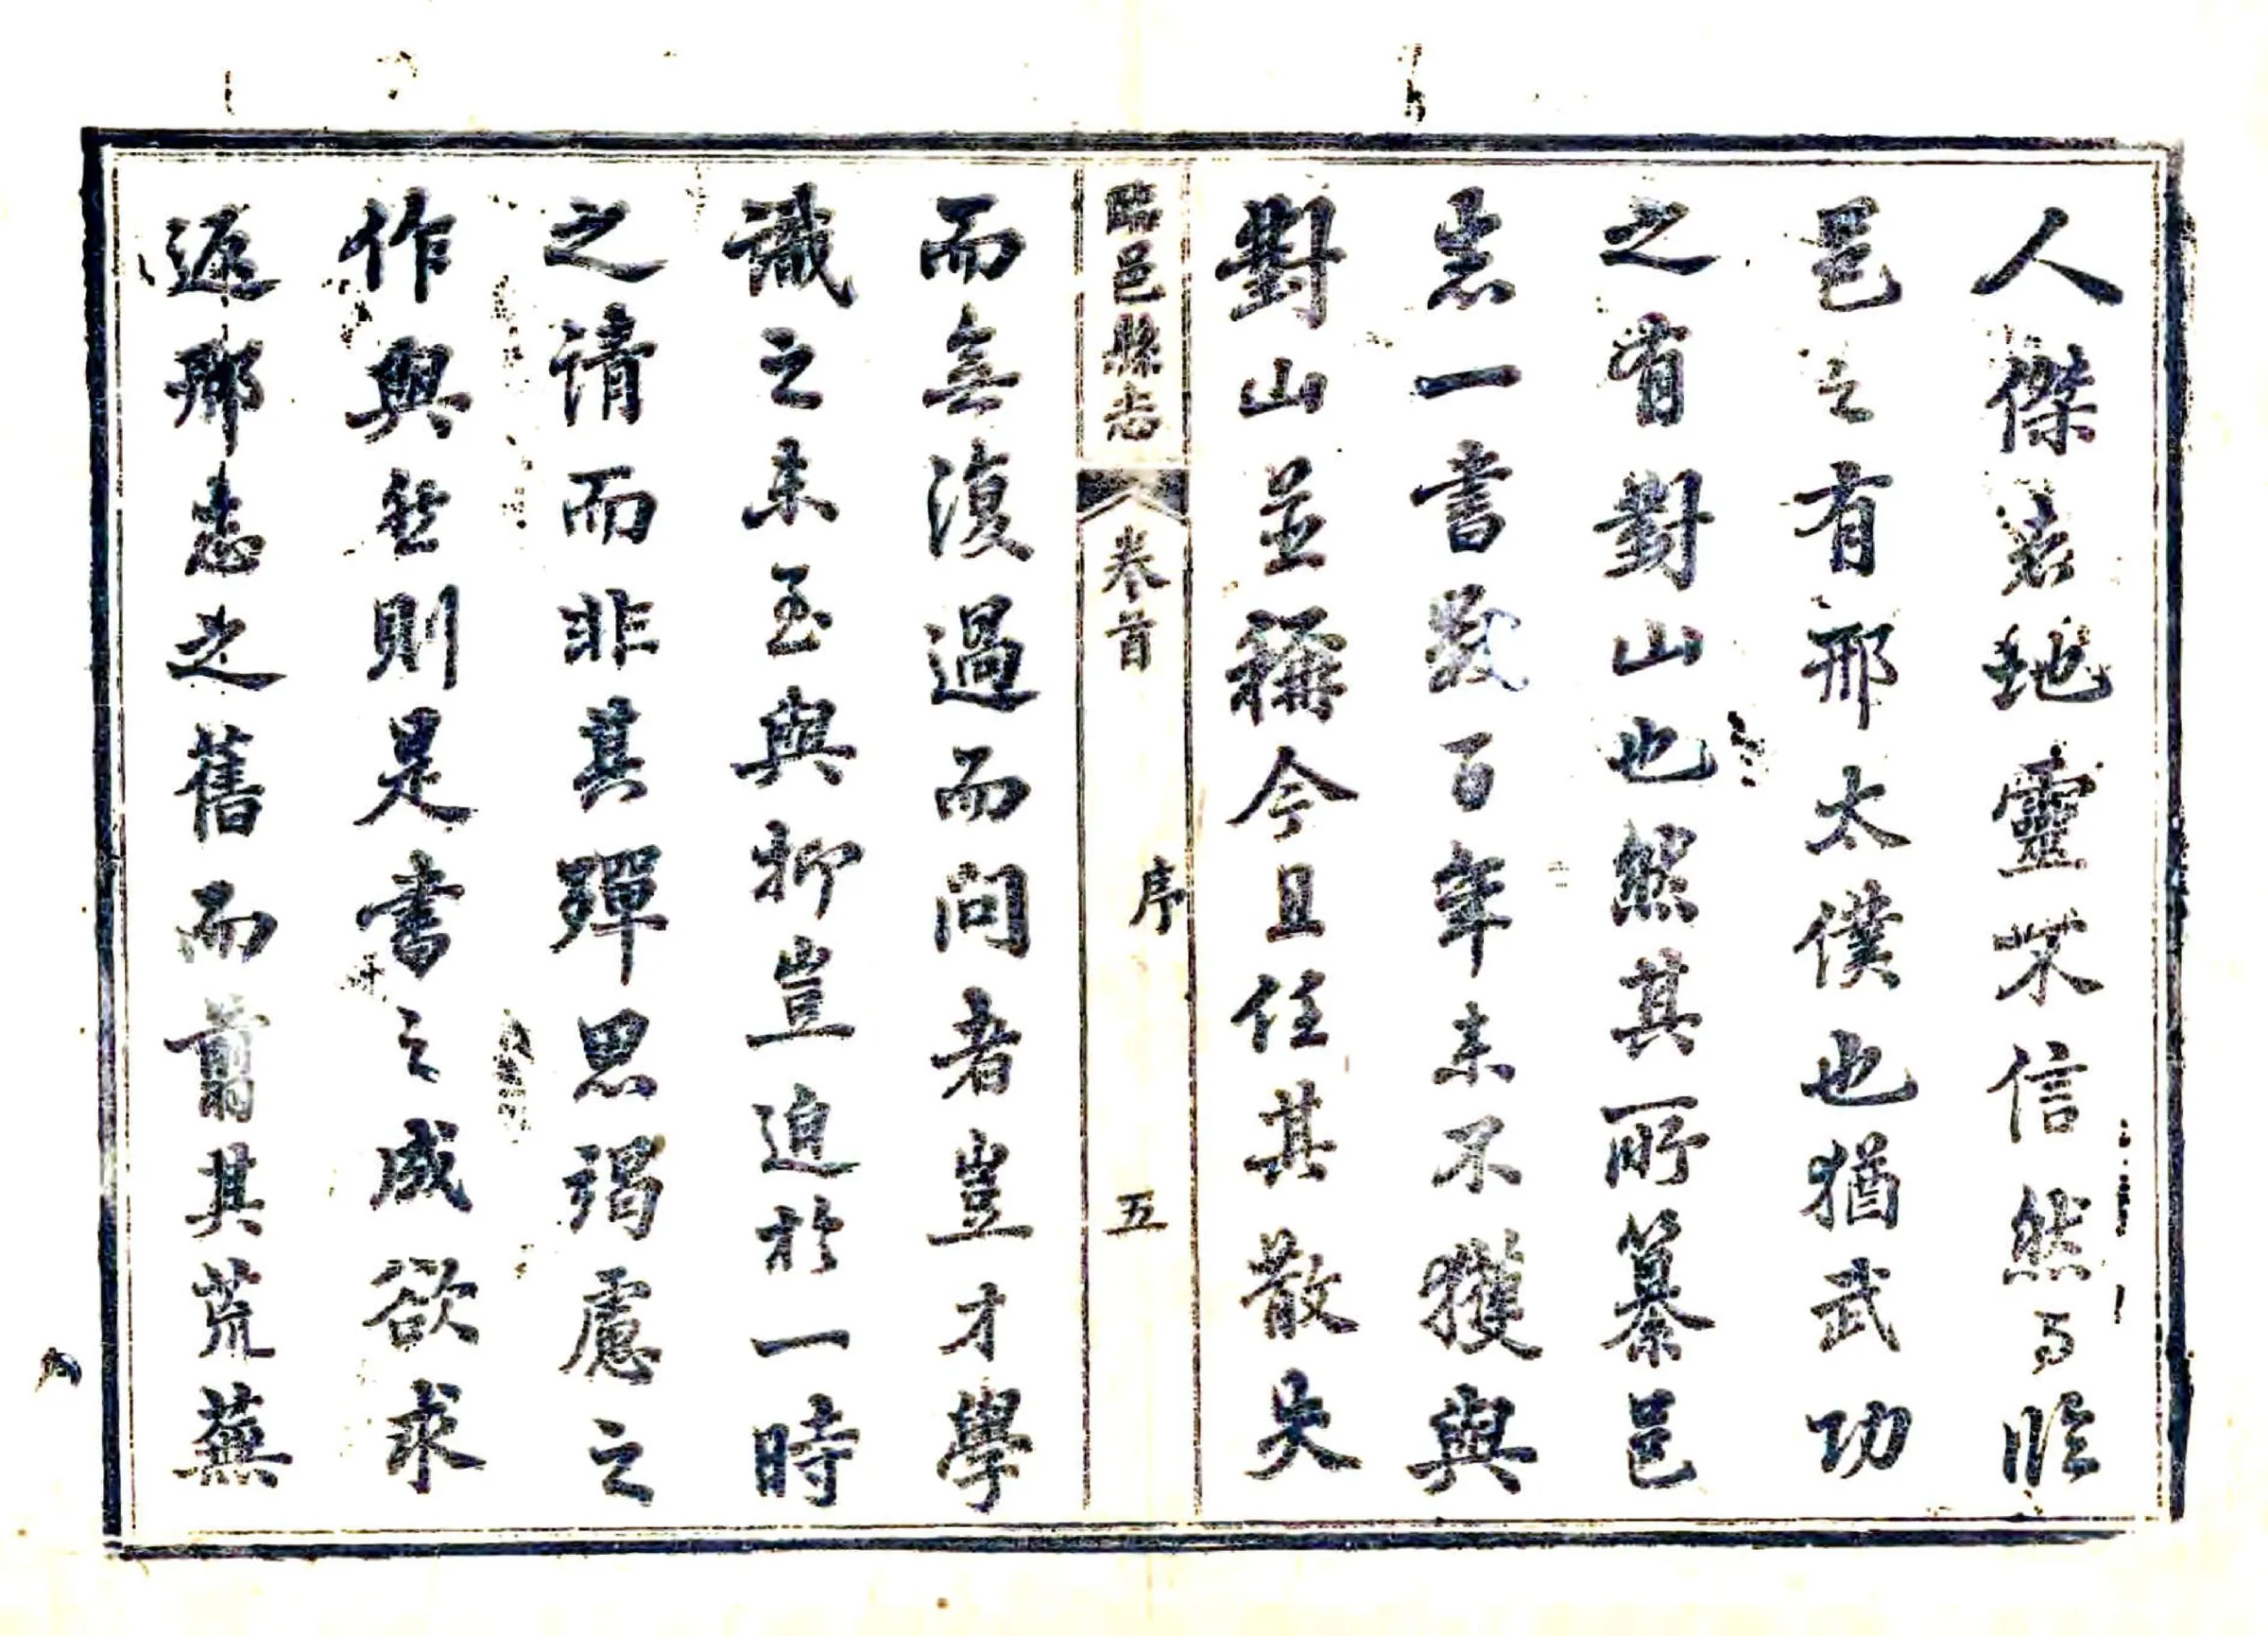 人傑者地靈不信然乎臨
邑之有邢太僕也猶武功
之有對山也然其所纂邑
志一書數百年來不獲與
對山並稱今且任其散失
臨邑縣志 卷首 序 五
而無復過而問者豈才學
識之未至與抑豈迫於一時
之請而非其殫思竭慮之
作與然則是書之成欲求
返鄉志之舊而翦其荒蕪